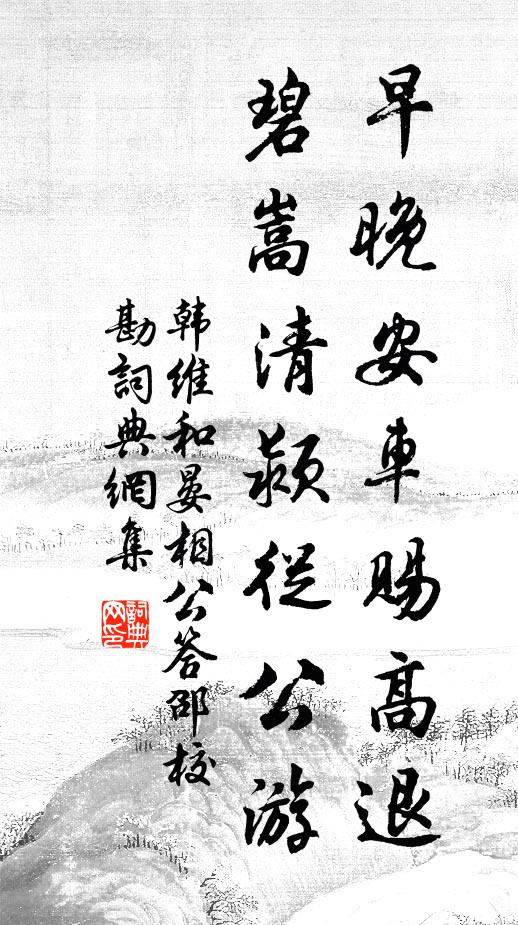 早晚安車賜高退
碧嵩清潁從公游
韩维和晏相公答邵校
勘詞典網集
詞典网印